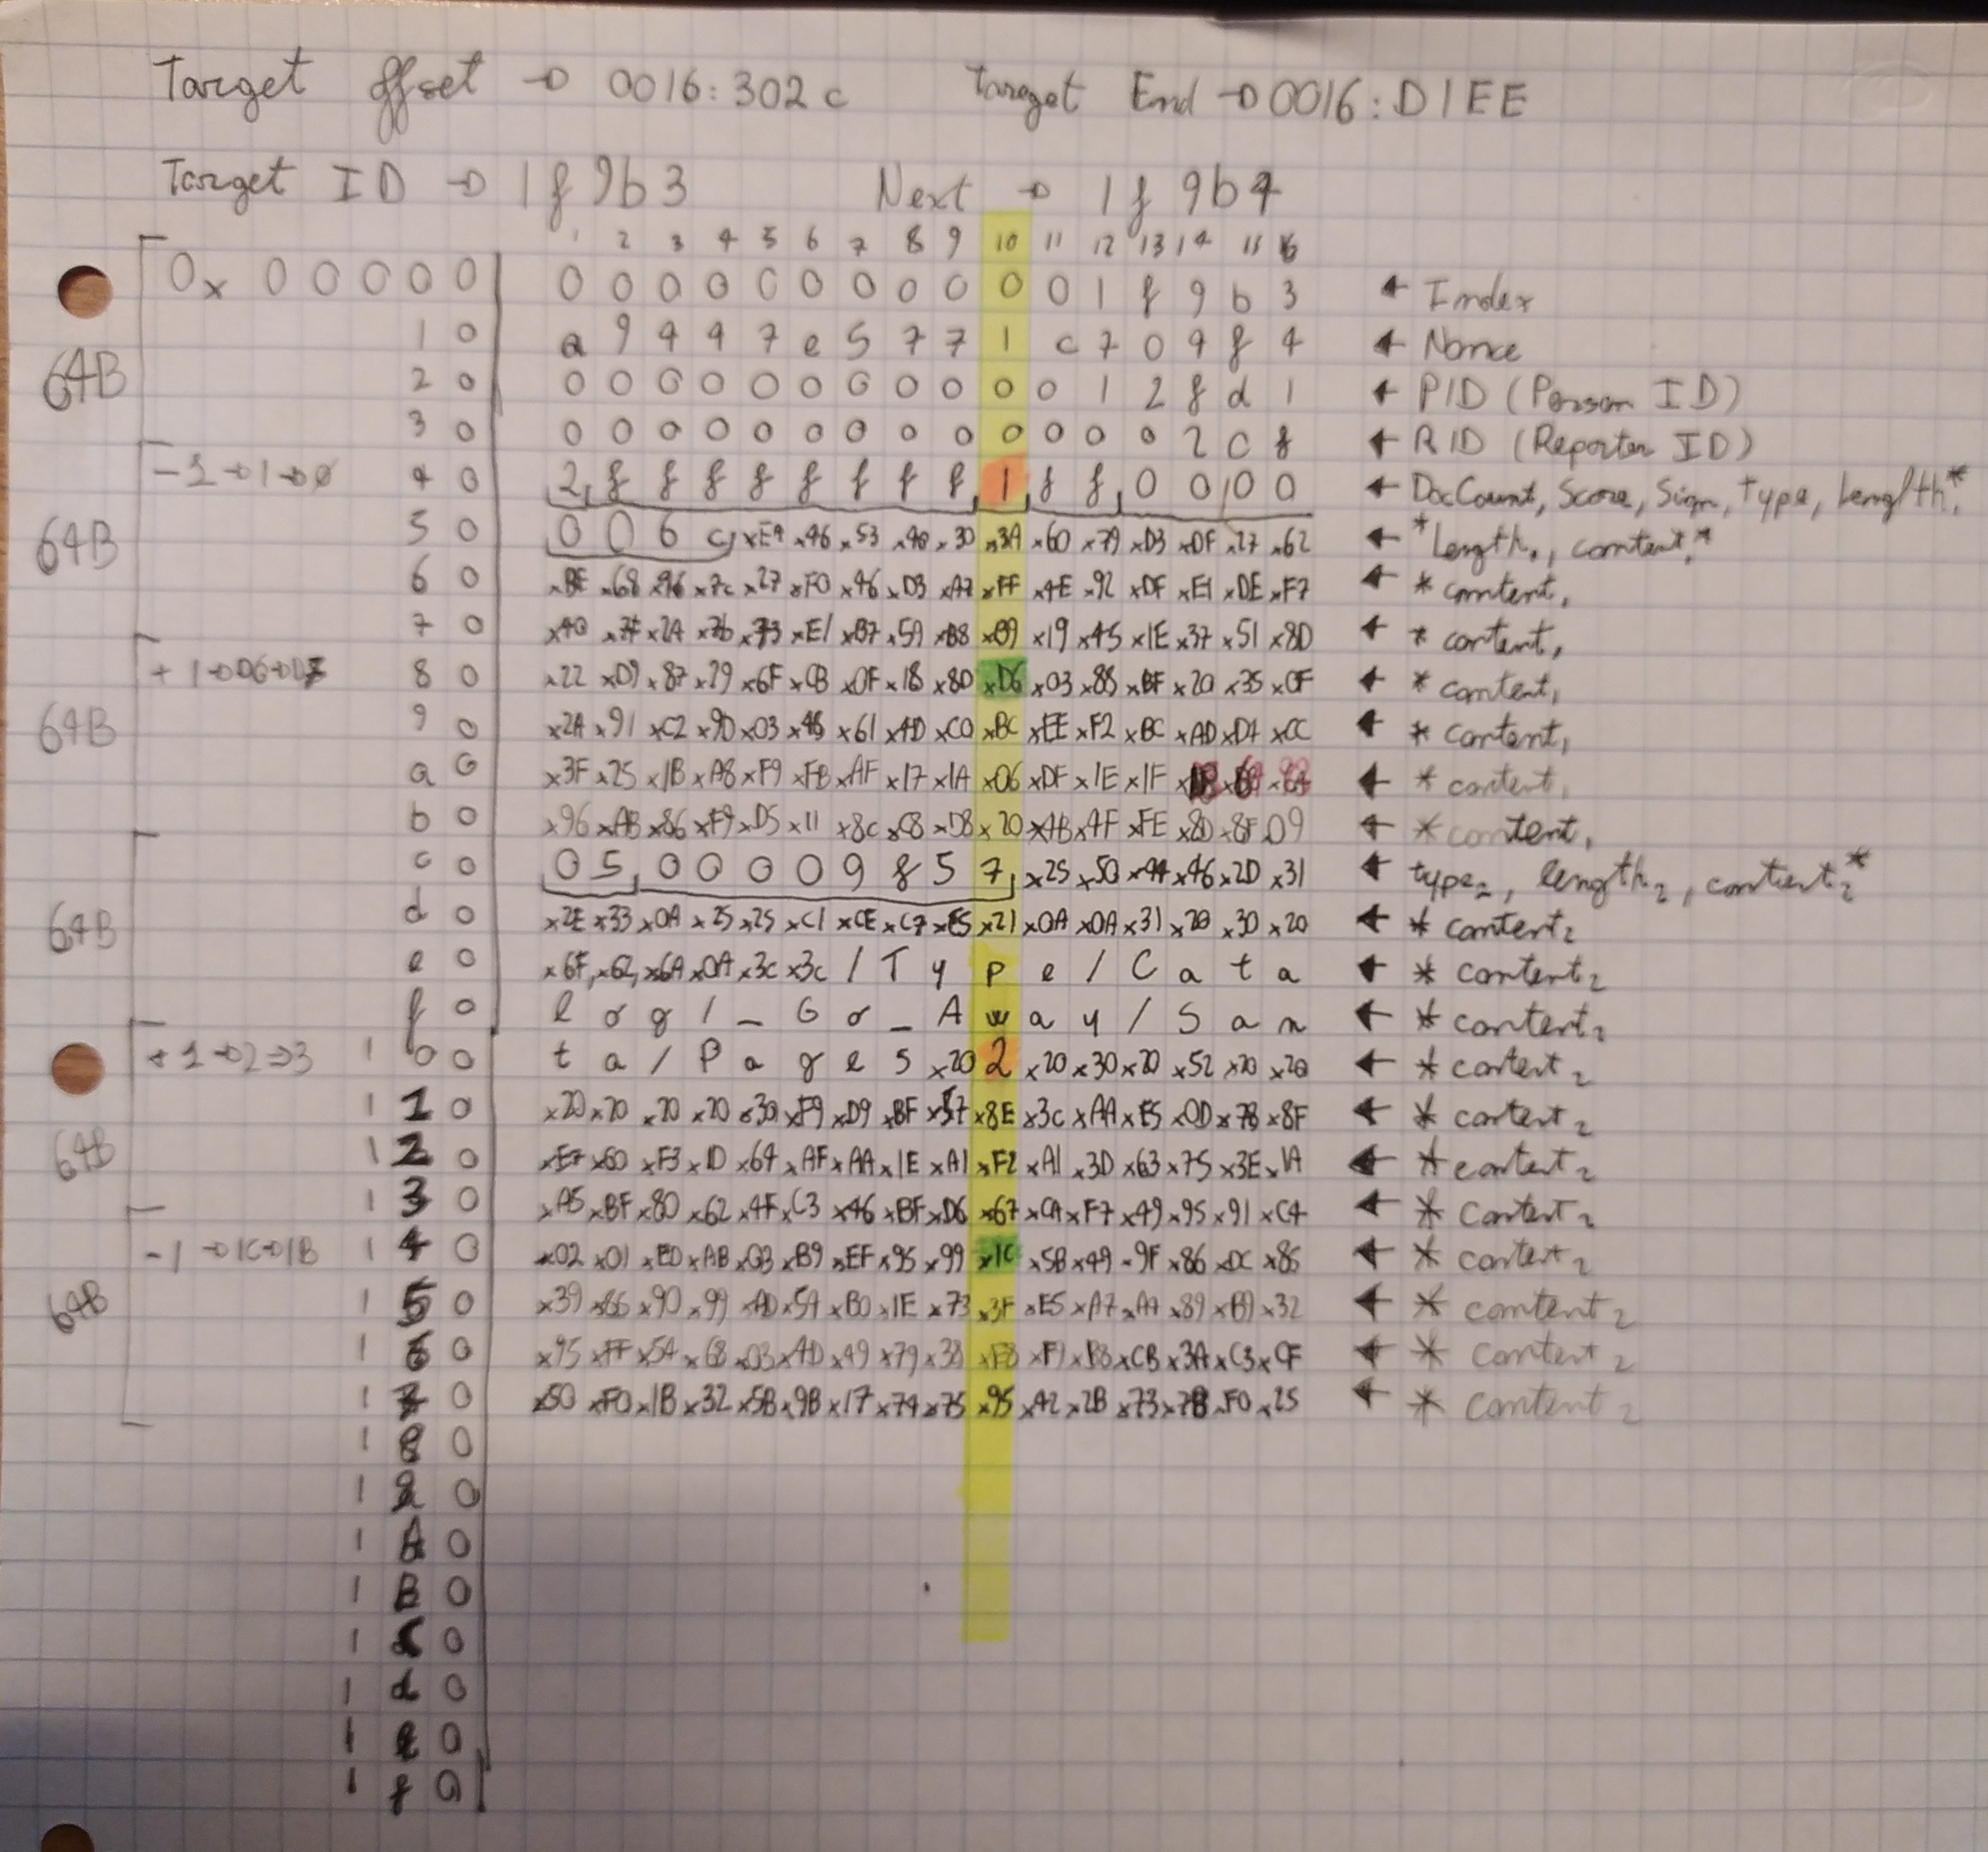 Target offset → 0016:302c Target End → 0016:D1EE
Target ID → 1f9b3 Next → 1f9b4
1 2 3 4 5 6 7 8 9 10 11 12 13 14 15 16
0x 0 0 0 0 0 0 0 0 0 0 0 0 0 0 0 0 1 f 9 b 3 ← Index
64B 1 0 a 9 4 4 7 e 5 7 7 1 c 7 0 9 f 4 ← Nonce
2 0 0 0 0 0 0 0 0 0 0 0 0 1 2 8 d 1 ← PID (Person ID)
3 0 0 0 0 0 0 0 0 0 0 0 0 0 0 2 c f ← RID (Reporter ID)
-1→1→0 4 0 2, f f f f f f f f, 1, f f, 0 0 0 0 ← DocCount, Score, Sign, Type, Length,*
64B 5 0 0 0 6 c, xE9 x46 x53 x48 x30 x3A x60 x79 xD3 xDF x27 x62 ← *Length,, content,*
6 0 xBE x68 x96 x7c x27 xF0 x46 xD3 xA7 xFF x4E x92 xDF xE1 xDE xF7 ← * content,
7 0 x40 x2A x7b x73 xE1 xB7 x5A xB8 x09 x19 x45 x1E x37 x51 x8D ← * content,
+1→D6→D7 8 0 x22 xD9 x87 x29 x6F xCB x0F x18 x8D xD6 x03 x88 xBF x20 x35 xCF ← * content,
64B 9 0 x2A x91 xC2 x9D x03 x46 x61 x4D xC0 xBC xEE xF2 xBC xAD xD7 xCC ← * content,
a 0 x3F x25 x1B xA8 xF9 xFB xAF x17 x1A x06 xDF x1E x1F ← * content,
b 0 x96 xAB x86 xF9 xD5 x11 x8c xC8 xD8 x20 x4B x4F xFE x8D x8F 09 ← * content,
c 0 0 5, 0 0 0 0 9 f 5 7, x25 x50 x44 x46 x2D x31 ← type2, length2, content2*
64B d 0 x2E x33 x0A x25 x25 xC1 xCE xC7 xE5 x21 x0A x0A x31 x20 x30 x20 ← * content2
e 0 x6F, x62, x6A x0A x3c x3c / T y p e / C a t a ← * content2
f 0 l o g / _ G o _ A w a y / S a n ← * content2
+1→2→3 1 0 0 t a / P a g e s x20 2 x20 x30 x20 x52 x20 x20 ← * content2
64B 1 1 0 x20 x20 x20 x20 x30 xF9 xD9 xBF x57 x8E x3c xAA xE5 x0D x78 x8F ← * content2
1 2 0 xE7 x60 xF3 x1D x64 xAF xAA x1E xA1 xF2 xA1 x3D x63 x75 x3E x1A ← * content2
1 3 0 xA5 xBF x80 x62 x4F xC3 x46 xBF xD6 x67 xCA xF7 x49 x95 x91 xC4 ← * content2
-1→1C→1B 1 4 0 x02 x01 xED xAB x03 xB9 xEF x95 x99 x1C x5B x49 x9F x86 xDC x85 ← * content2
64B 1 5 0 x39 x86 x90 x99 xAD x5A xB0 x1E x73 x3F xE5 xA7 xA4 x89 xB9 x32 ← * content2
1 6 0 x95 xFF x5A x68 x03 x4D x49 x79 x38 xF8 xF1 xB8 xCB x3A xC3 xCF ← * content2
1 7 0 x50 xF0 x1B x32 x5B x9B x17 x74 x75 x95 x42 x2B x73 x7B xF0 x25 ← * content2
1 8 0
1 9 0
1 A 0
1 B 0
1 c 0
1 d 0
1 e 0
1 f 0